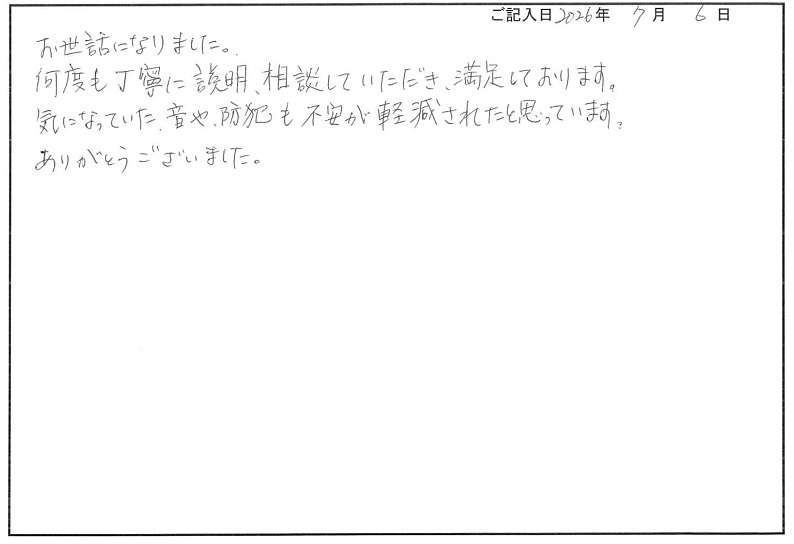 ご記入日2026年 7月 6日
お世話になりました。
何度も丁寧に説明、相談していただき、満足しております。
気になっていた、音や、防犯も不安が軽減されたと思っています。
ありがとうございました。